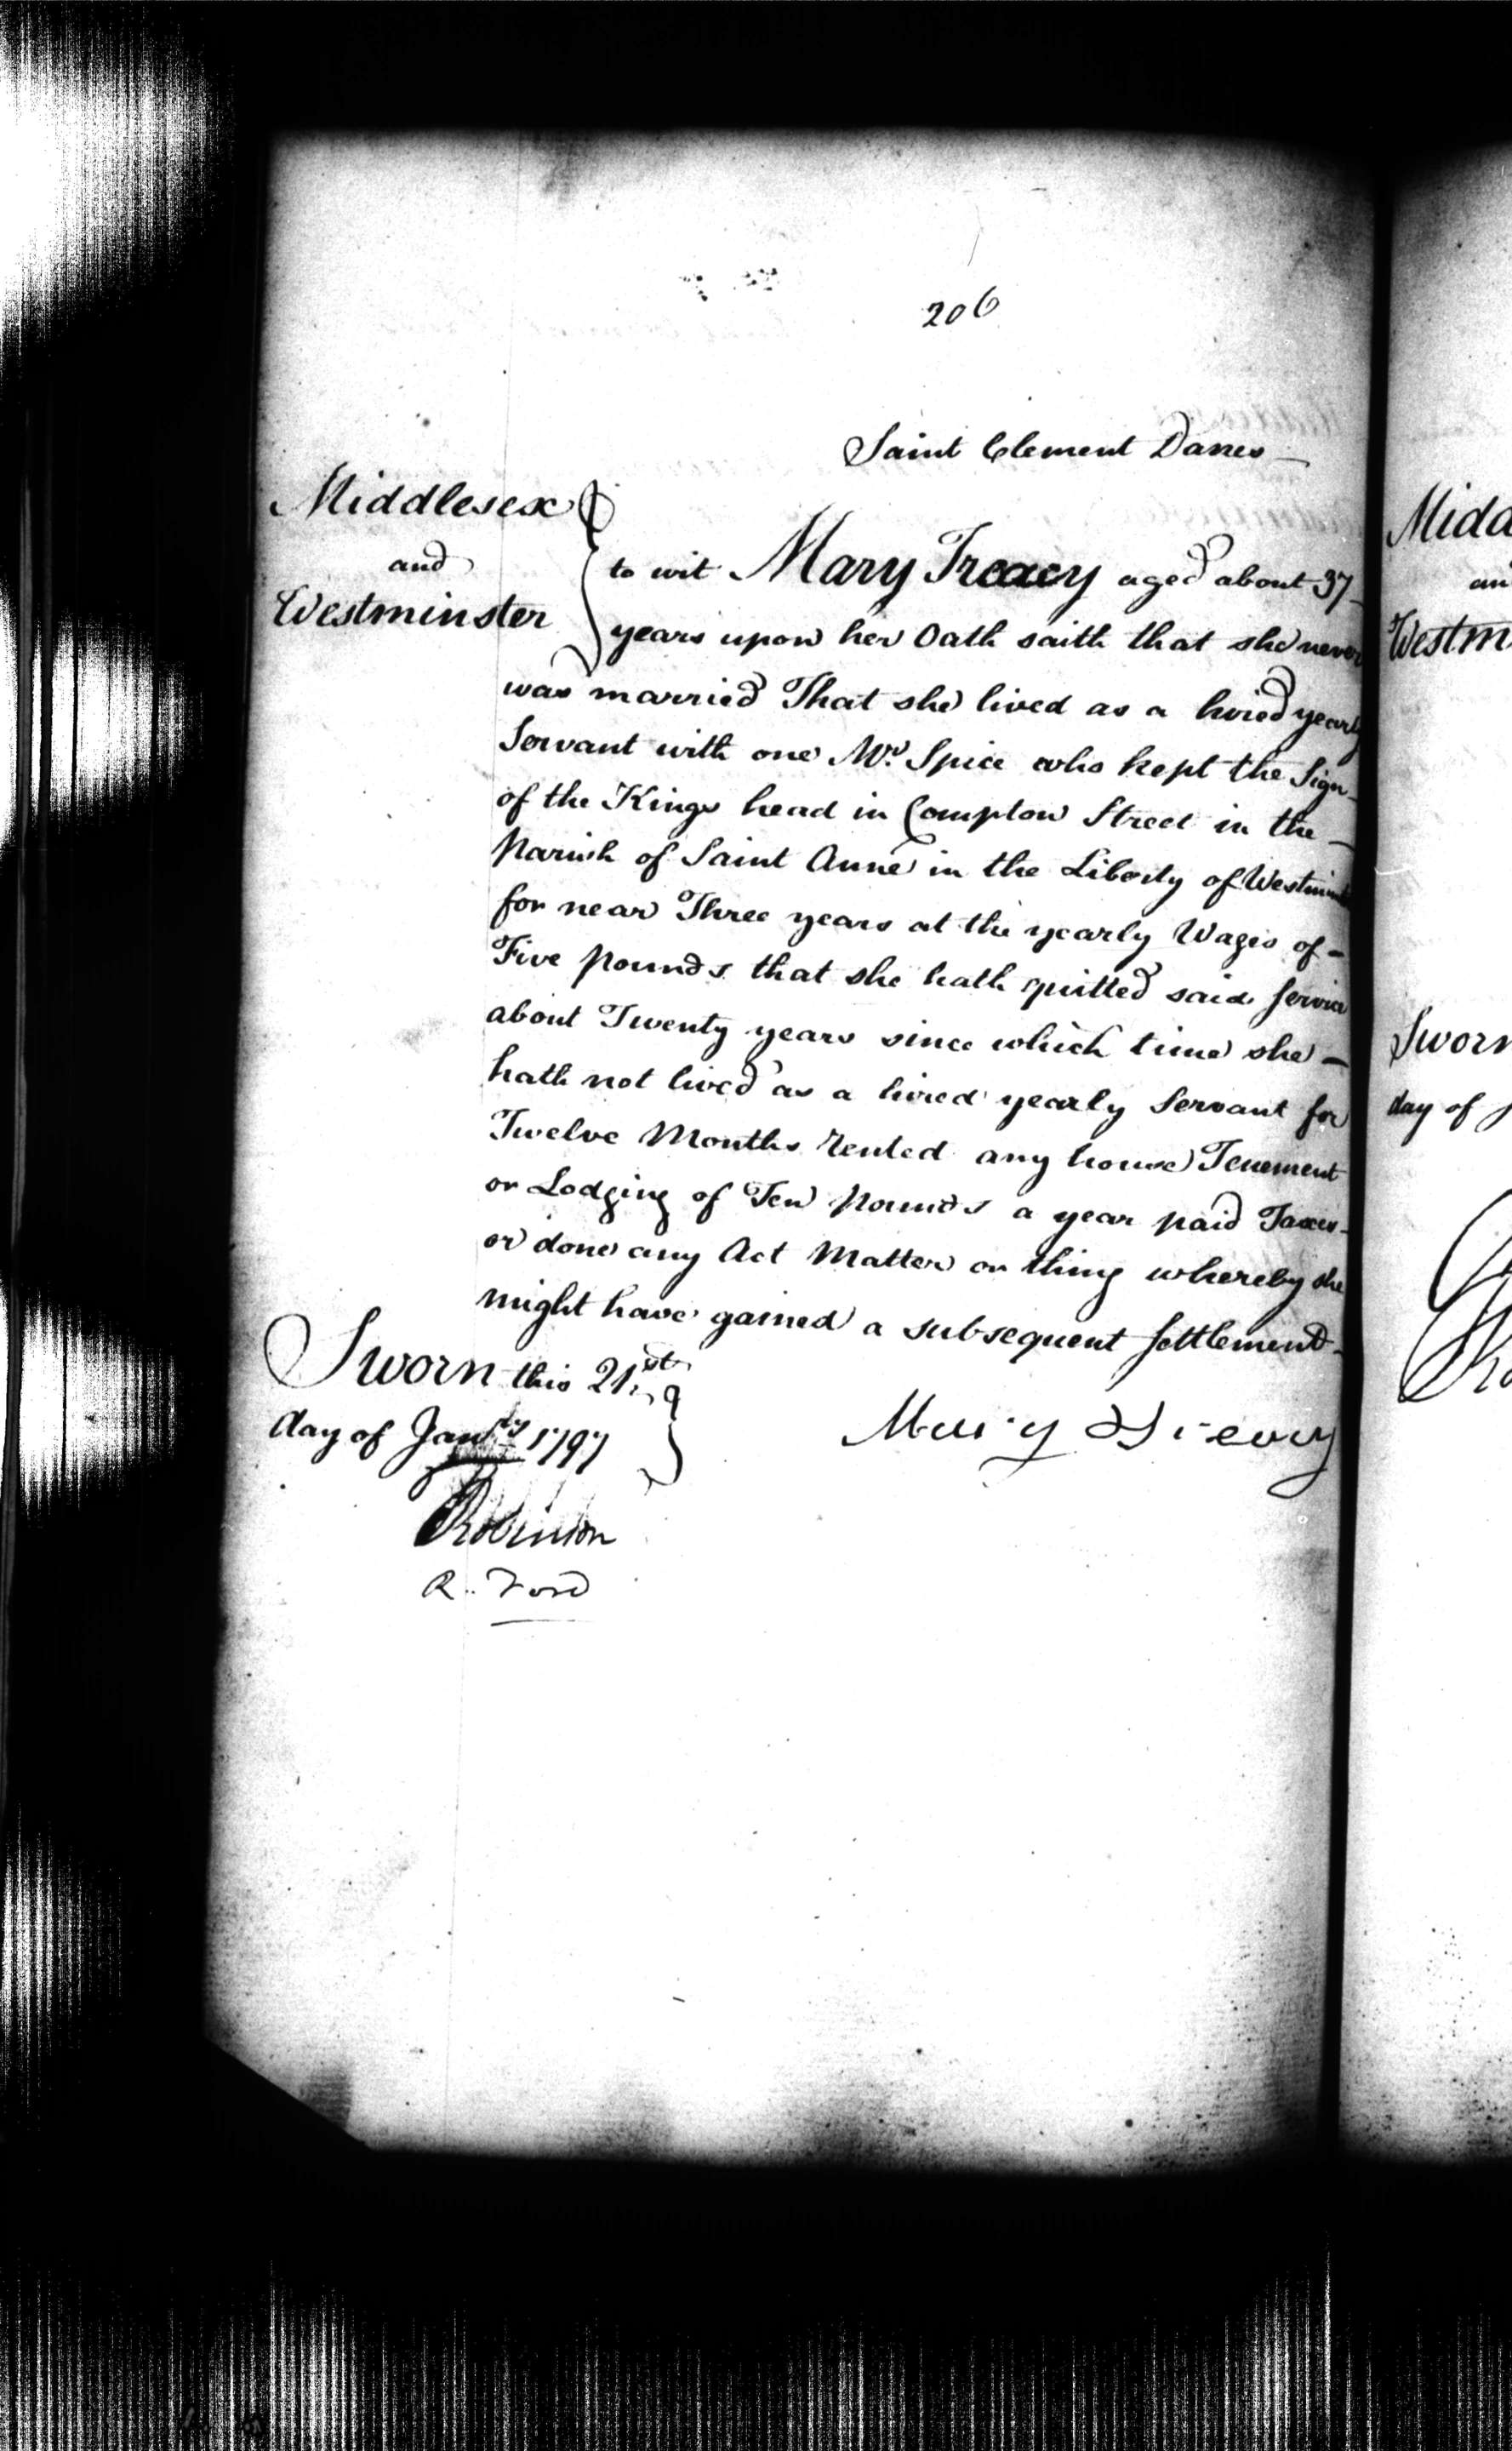 206
Saint Clement Danes
Middlesex
and
Westminster
to wit Mary Treacy aged about 37
years upon her Oath saith that she never
was married That she lived as a hired yearly
Servant with one Mr. Spice who kept the Sign
of the Kings head in Compton Street in the
Parish of Saint Anne in the Liberty of Westminster
for near Three years at the yearly Wages of
Five pounds that she hath quitted said Service
about Twenty years since which time she
hath not lived as a hired yearly Servant for
Twelve Months rented any house Tenement
or Lodging of Ten pounds a year paid Taxes
or done any Act Matter or thing whereby she
might have gained a subsequent Settlement
Sworn this 21st
day of Janry 1797
Mary
Robinson
R. Ford
Midd
an
Westm
Sworn
day of